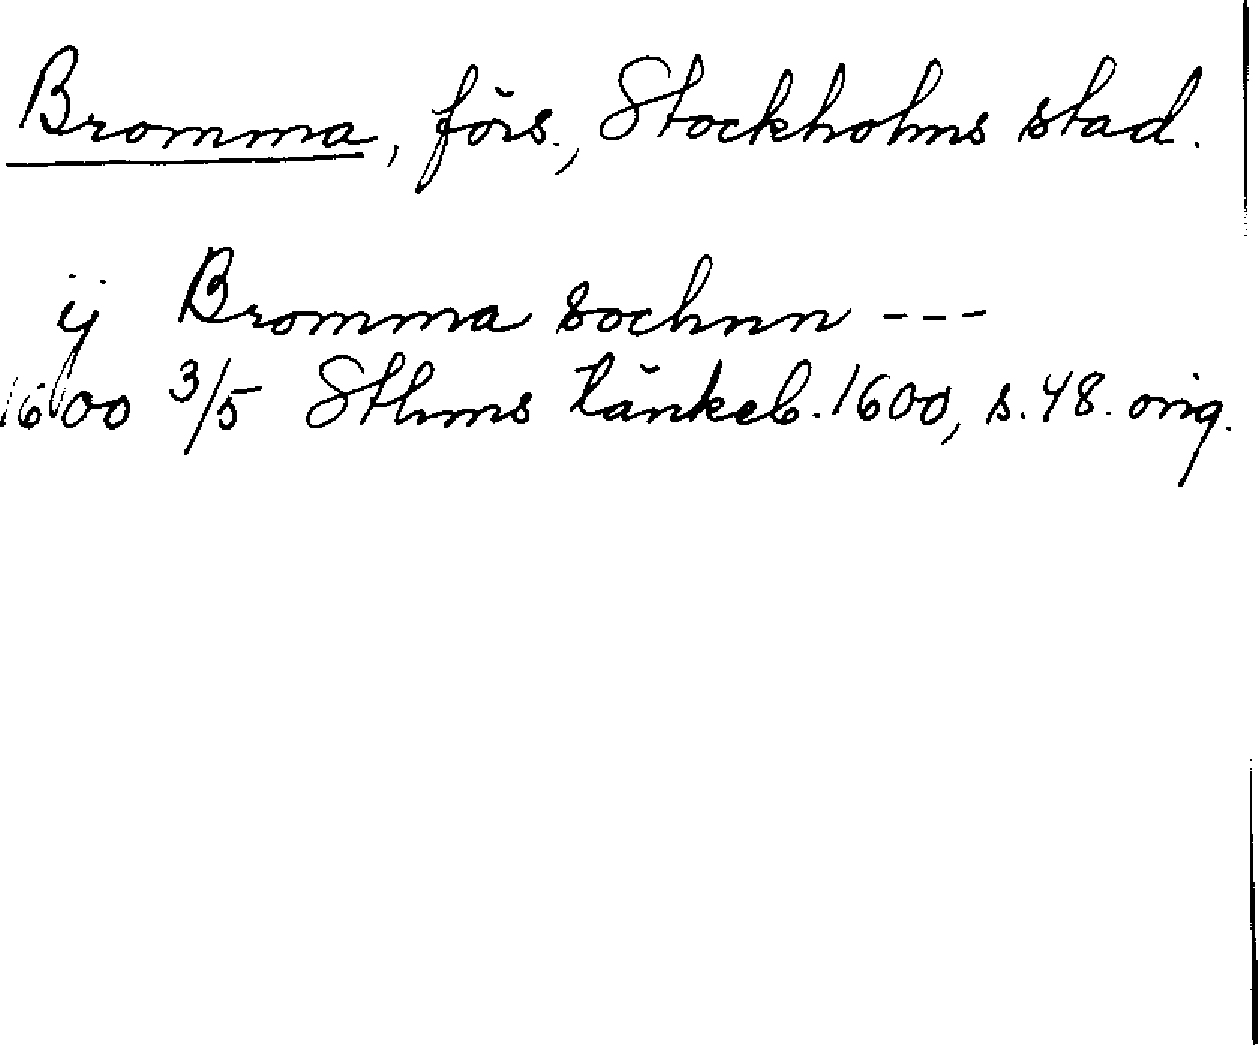 Bromma, förs., Stockholms stad.
ij Bromma sochnn ---
1600 3/5 Sthms tänkeb. 1600, s. 48. orig.